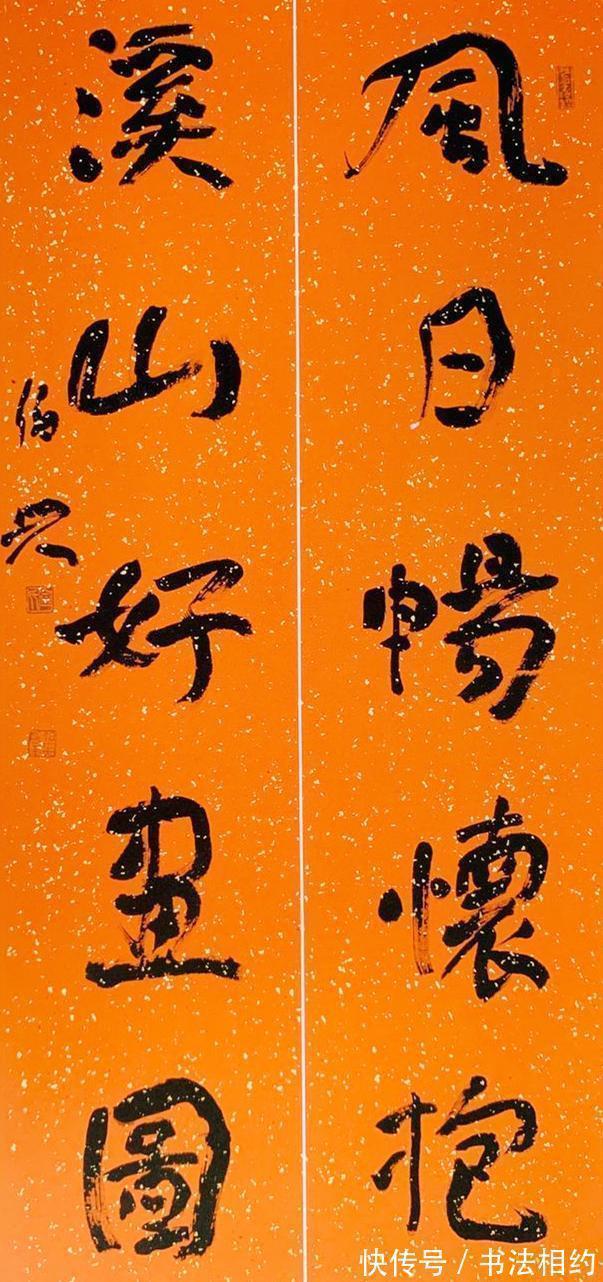 風日暢懷抱
溪山好畫圖
快传号 / 书法相约